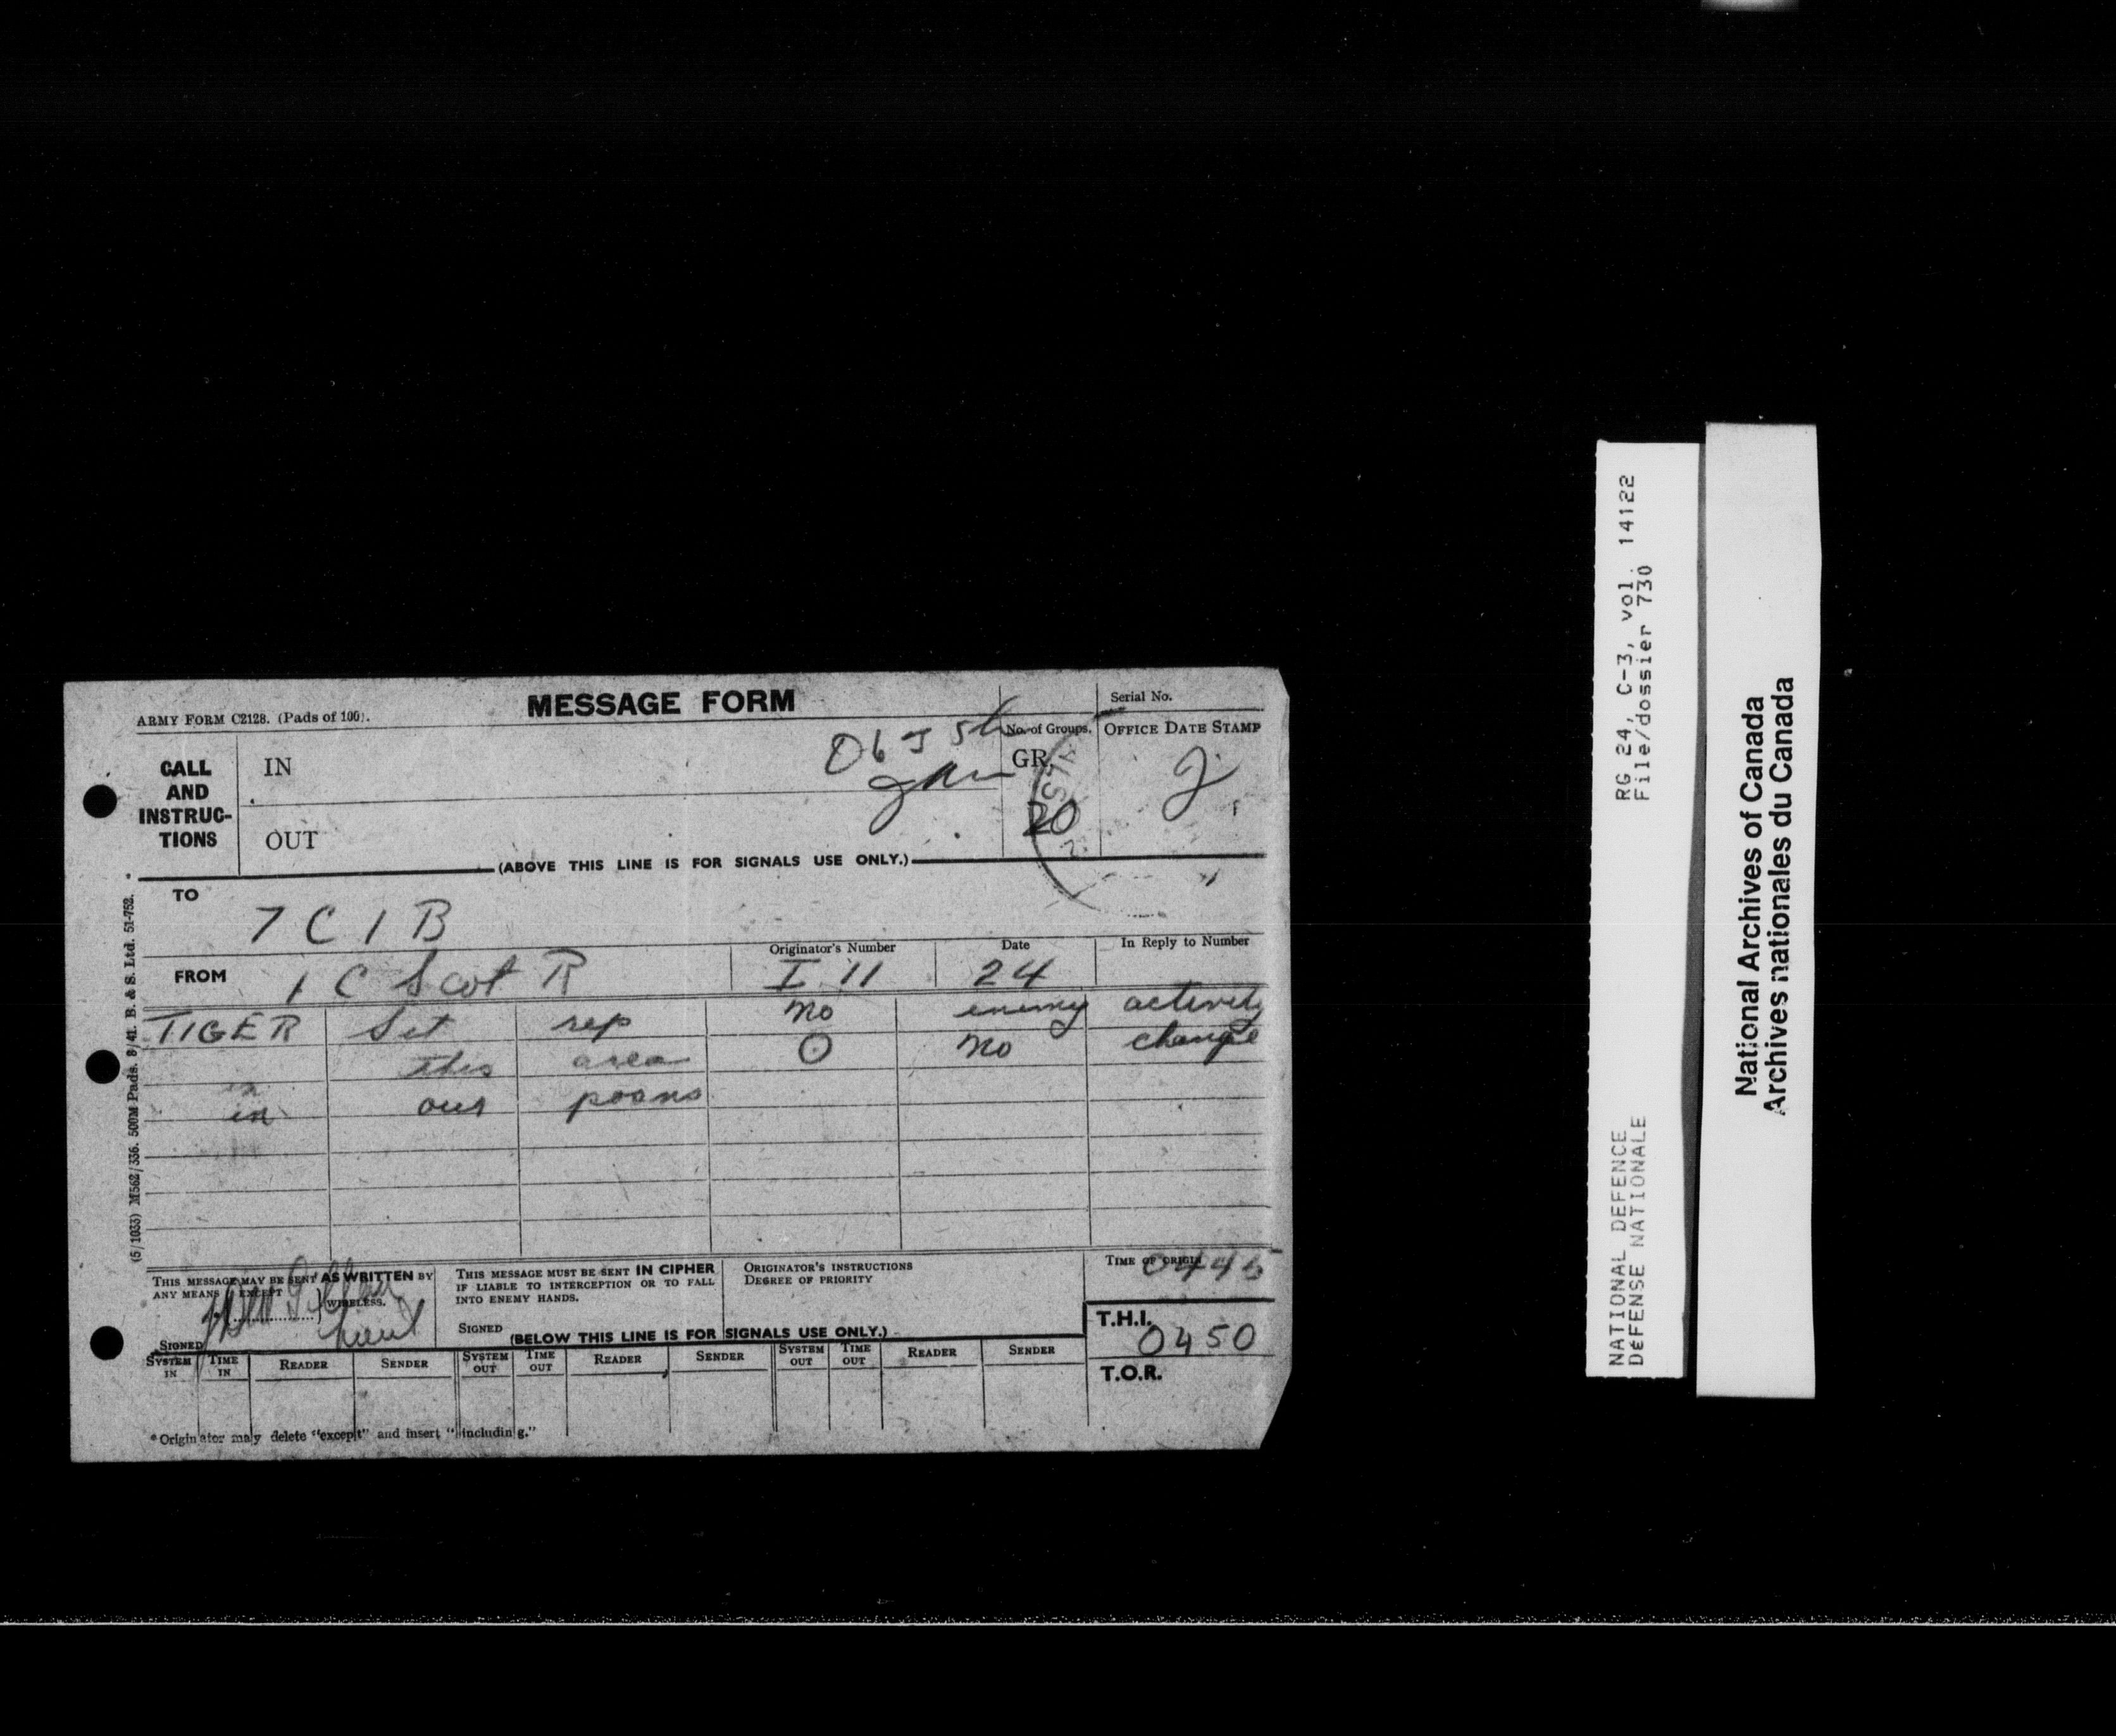 MESSAGE FORM
ARMY FORM C2128. (Pads of 100).
Serial No.
CALL AND INSTRUC-TIONS
IN
No. of Groups.
GR.
20
OFFICE DATE STAMP
OUT
(ABOVE THIS LINE IS FOR SIGNALS USE ONLY.)
TO
7 C I B
FROM 1 C Scot R
Originator's Number
I 11
Date
24
In Reply to Number
TIGER Sit rep no enemy activity
in this area O no change
in our posns
(5/1033) M562/336. 500M Pads. 8/41. B. & S. Ltd. 51-752.
THIS MESSAGE MAY BE SENT AS WRITTEN BY
ANY MEANS EXCEPT WIRELESS.
SIGNED
THIS MESSAGE MUST BE SENT IN CIPHER
IF LIABLE TO INTERCEPTION OR TO FALL
INTO ENEMY HANDS.
SIGNED
ORIGINATOR'S INSTRUCTIONS
DEGREE OF PRIORITY
TIME OF ORIGIN
0445
T.H.I.
0450
T.O.R.
(BELOW THIS LINE IS FOR SIGNALS USE ONLY.)
SYSTEM IN TIME IN READER SENDER SYSTEM OUT TIME OUT READER SENDER SYSTEM OUT TIME OUT READER SENDER
*Originator may delete "except" and insert "including."
RG 24, C-3, vol. 14122
File/dossier 730
NATIONAL DEFENCE
DÉFENSE NATIONALE
National Archives of Canada
Archives nationales du Canada